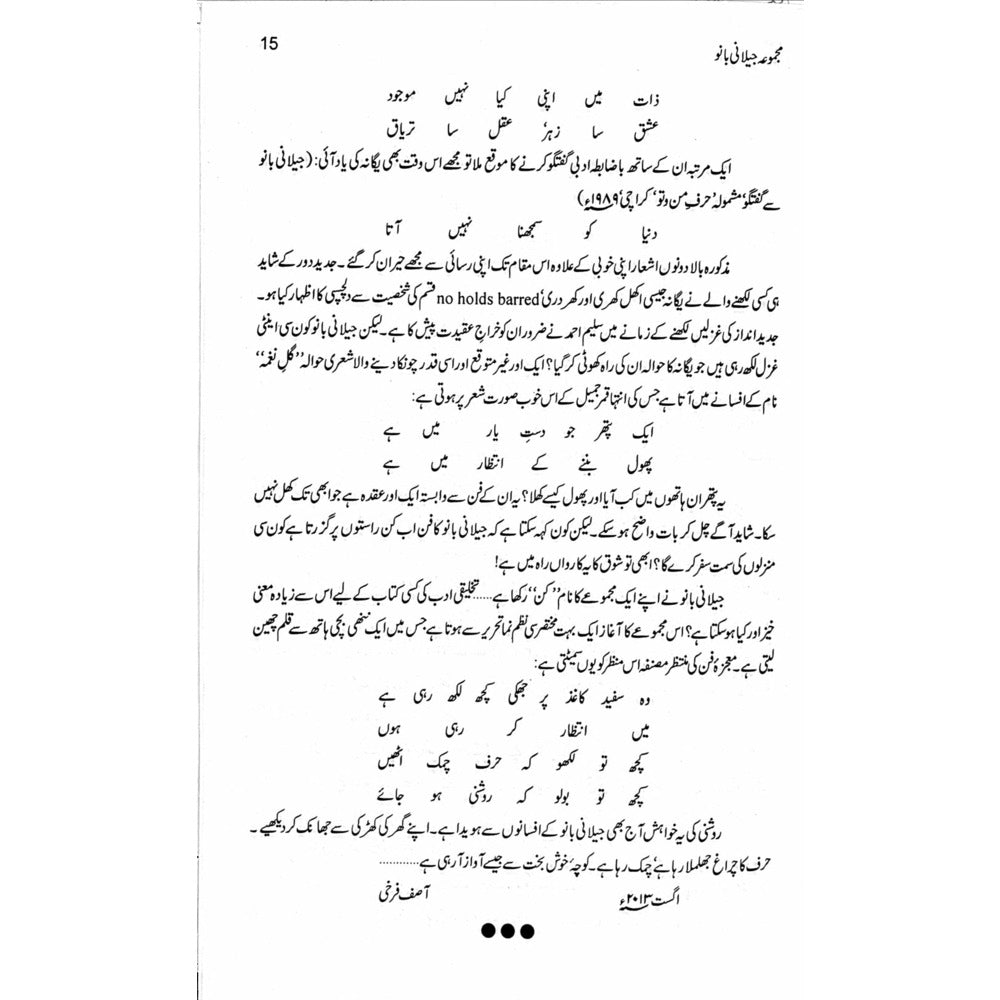 مجموعہ جیلانی بانو 15
ذات میں اپنی کیا نہیں موجود
عشق سا زہر' عقل سا تریاق
ایک مرتبہ ان کے ساتھ باضابطہ ادبی گفتگو کرنے کا موقع ملا تو مجھے اس وقت بھی یگانہ کی یاد آئی: (جیلانی بانو
سے گفتگو' مشمولہ' حرفِ من و تو' کراچی' ۱۹۸۹ء)
دنیا کو سمجھنا نہیں آتا
مذکورہ بالا دونوں اشعار اپنی خوبی کے علاوہ اس مقام تک اپنی رسائی سے مجھے حیران کر گئے۔ جدید دور کے شاید
ہی کسی لکھنے والے نے یگانہ جیسی اکھل کھری اور کھردری' no holds barred قسم کی شخصیت سے دلچسپی کا اظہار کیا ہو۔
جدید انداز کی غزلیں لکھنے کے زمانے میں سلیم احمد نے ضرور ان کو خراجِ عقیدت پیش کا ہے۔ لیکن جیلانی بانو کون سی اینٹی
غزل لکھ رہی ہیں جو یگانہ کا حوالہ ان کی راہ کھوٹی کر گیا؟ ایک اور غیر متوقع اور اسی قدر چونکا دینے والا شعری حوالہ ''گلِ نغمہ''
نام کے افسانے میں آتا ہے جس کی انتہا قمر جمیل کے اس خوب صورت شعر پر ہوتی ہے:
ایک پتھر جو دستِ یار میں ہے
پھول بننے کے انتظار میں ہے
یہ پتھر ان ہاتھوں میں کب آیا اور پھول کیسے کھلا؟ یہ ان کے فن سے وابستہ ایک اور عقدہ ہے جو ابھی تک کھل نہیں
سکا۔ شاید آگے چل کر بات واضح ہو سکے۔ لیکن کون کہہ سکتا ہے کہ جیلانی بانو کا فن اب کن راستوں پر گزرتا ہے کون سی
منزلوں کی سمت سفر کرے گا؟ ابھی تو شوق کا یہ کارواں راہ میں ہے!
جیلانی بانو نے اپنے ایک مجموعے کا نام ''کن'' رکھا ہے...... تخلیقی ادب کی کسی کتاب کے لیے اس سے زیادہ معنی
خیز اور کیا ہو سکتا ہے؟ اس مجموعے کا آغاز ایک بہت مختصر سی نظم نما تحریر سے ہوتا ہے جس میں ایک ننھی بچی ہاتھ سے قلم چھین
لیتی ہے۔ معجزۂ فن کی منتظر مصنفہ اس منظر کو یوں سمیٹتی ہے:
وہ سفید کاغذ پر جھکی کچھ لکھ رہی ہے
میں انتظار کر رہی ہوں
کچھ تو لکھو کہ حرف چمک اٹھیں
کچھ تو بولو کہ روشنی ہو جائے
روشنی کی یہ خواہش آج بھی جیلانی بانو کے افسانوں سے ہویدا ہے۔ اپنے گھر کی کھڑکی سے جھانک کر دیکھیے۔
حرف کا چراغ جھلملا رہا ہے' چمک رہا ہے۔ کوچۂ خوش بخت سے جیسے آواز آ رہی ہے...........
اگست ۲۰۱۳ء آصف فرخی